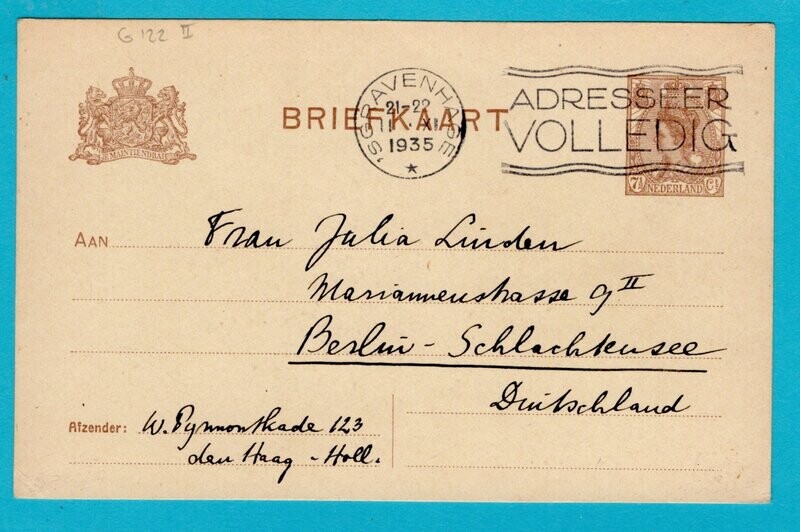 G 122 II
JE MAINTIENDRAI
BRIEFKAART
'SGRAVENHAGE
21-22
11 XI
1935
ADRESSEER
VOLLEDIG
7½ NEDERLAND Ct
AAN Frau Julia Linden
Mariannenstrasse 9 II
Berlin - Schlachtensee
Deutschland
Afzender: W. Pyrmontkade 123
den Haag - Holl.